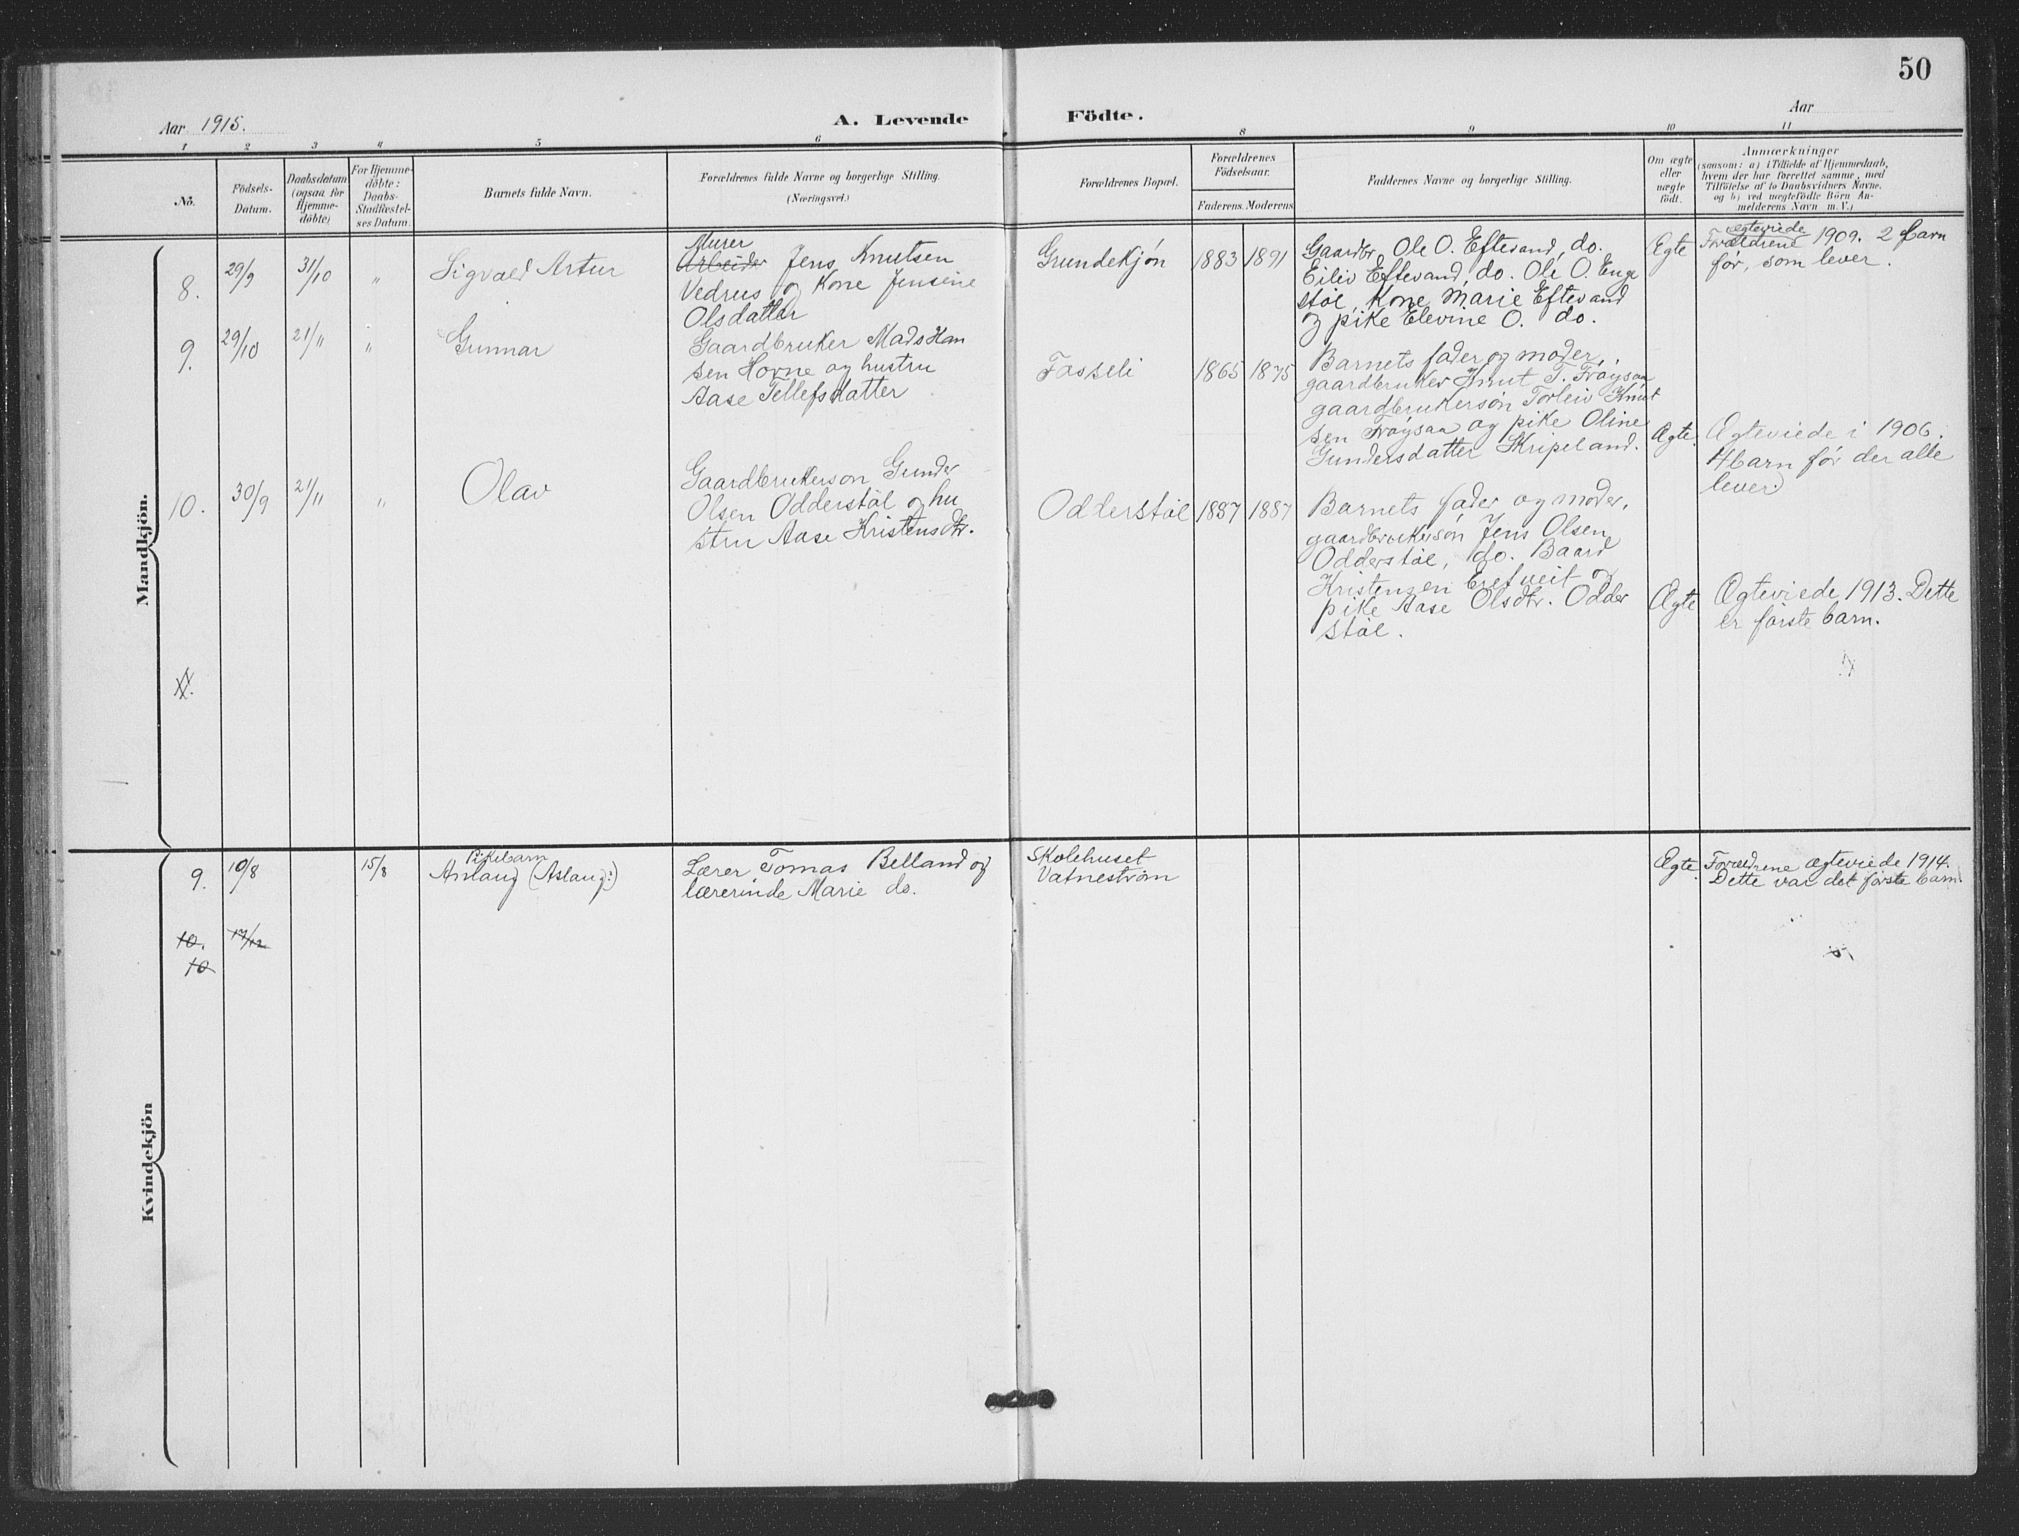 50
Aar 1915.
A. Levende Födte.
Aar
1 2 3 4 5 6 8 9 10 11
No.
Födsels-
Datum.
Daabsdatum
(ogsaa for
Hjemme-
döbte)
For Hjemme-
döbte:
Daabs-
Stadfæstel-
ses Datum.
Barnets fulde Navn.
Forældrenes fulde Navne og borgerlige Stilling.
(Næringsvei.)
Forældrenes Bopæl.
Forældrenes
Födselsaar.
Faderens. Moderens.
Faddernes Navne og borgerlige Stilling.
Om ægte
eller
uægte
födt.
Anmærkninger
(saasom: a) i Tilfælde af Hjemmedaab,
hvem der har forrettet samme, med
Tilföielse af to Daabsvidners Navne.
og b) ved uægtefödte Börn An-
melderens Navn m. V.)
Mandkjön.
8.
29/9
31/10
"
Sigvald Artur
Murer
Arbeider Jens Knutsen
Vedrus og Kone Jensine
Olsdatter
Grundekjøn
1883
1891
Gaardbr. Ole O. Eftevand, do.
Eiliv Eftevand, do. Ole O. Enge
støl, Kone Marie Eftevand
og pike Elevine O. do.
Ægte
ægteviede
Forældrene 1909. 2 barn
før, som lever.
9.
29/10
21/11
"
Gunnar
Gaardbruker Mads Han
sen Hovne og hustru
Aase Tellefsdatter
Fosseli
1865
1875
Barnets fader og moder,
gaardbruker Knut T. Frøysaa
gaardbrukersøn Torleiv Knut
sen Frøysaa og pike Oline
Gundersdatter Skripeland.
Ægte.
Ægteviede i 1906.
4 barn før der alle
lever.
10.
30/9
21/11
"
Olav
Gaardbrukersøn Gunder
Olsen Odderstøl og hu
stru Aase Kristensdtr.
Odderstøl
1887
1887
Barnets fader og moder,
gaardbrukersøn Jens Olsen
Odderstøl, do. Baard
Kristensen Eretveit og
pike Aase Olsdtr. Odder
støl.
Ægte
Ægteviede 1913. Dette
er første barn.
Kvindekjön
9.
10/8
15/8
Pikebarn
Anlaug (Aslaug?)
Lærer Tomas Belland og
lærerinde Marie do.
Skolehuset
Vatnestrøm
Ægte.
Forældrene ægteviede 1914.
Dette var det første barn.
10.
17/12
10